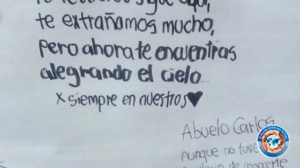 te extrañamos mucho,
pero ahora te encuentras
alegrando el cielo...
x siempre en nuestros ♥
Abuelo Carlos
Aunque no tuve